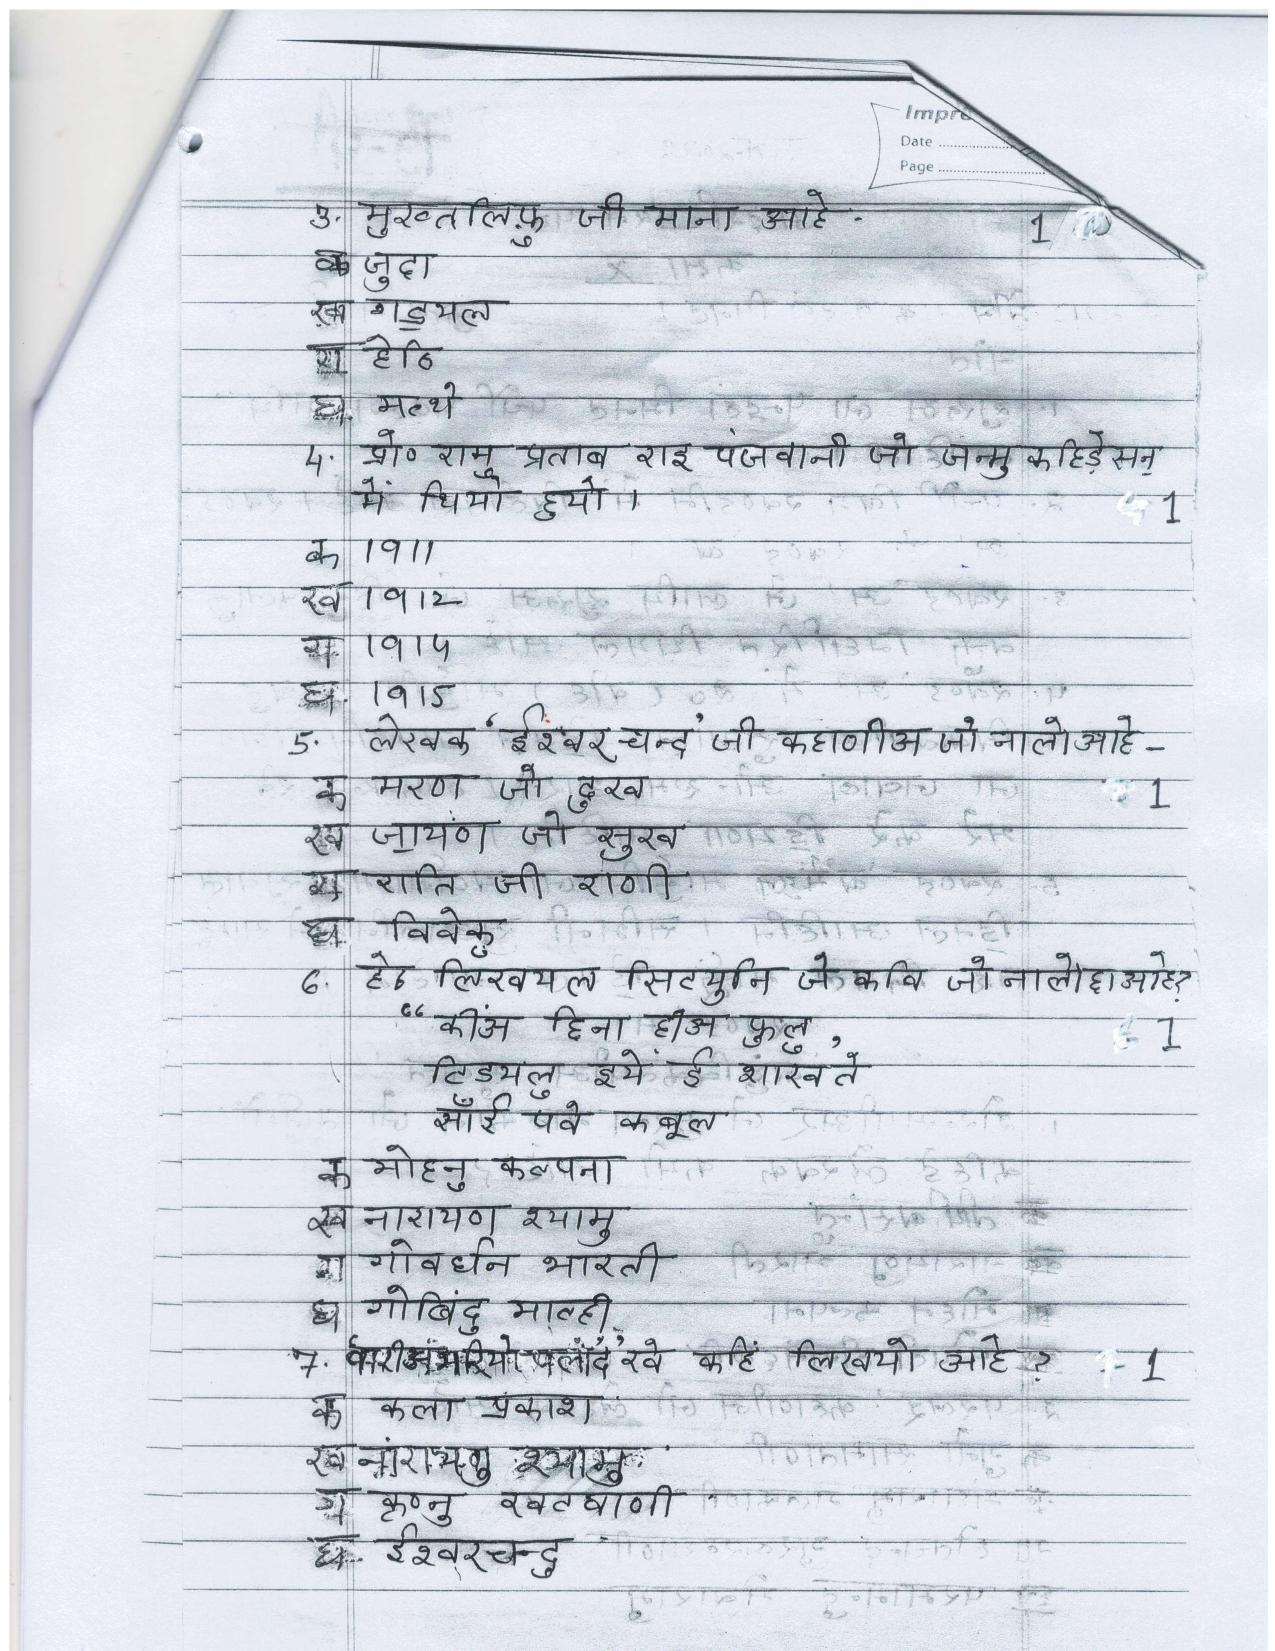 Impro
Date
Page
3. मुख्तलिफ़ु जी माना आहे - 1
क जुदा
ख गड॒यल
ग हेठि
घ. मत्थे
4. प्रो० रामु प्रताब राइ पंजवानी जो जन्मु कहिड़े सन्
में थियो हुयो। 1
क 1911
ख 1912
ग 1914
घ. 1915
5. लेखक 'ईश्वर चन्द' जी कहाणीअ जो नालो आहे -
क मरण जो दुख 1
ख जा॒यंण जो सुख
ग राति जी राणी
घ विवेकु
6. हेठ लिखयल सिटयुनि जे कवि जो नालो छा आहे?
"कीअं दिना हीअ फुलु, 1
टिड़यलु इये ई शाख ते
साँई पवे कबूल
क मोहनु कल्पना
ख नारायण श्यामु
ग गोवर्धन भारती
घ गोबिंदु माल्ही
7. 'वारीअ भरियो पलांद' खे कहिं लिखयो आहे ? 1
क कला प्रकाश
ख नारायणु श्यामु
ग कृष्नु खटवाणी
घ. ईश्वर चन्दु